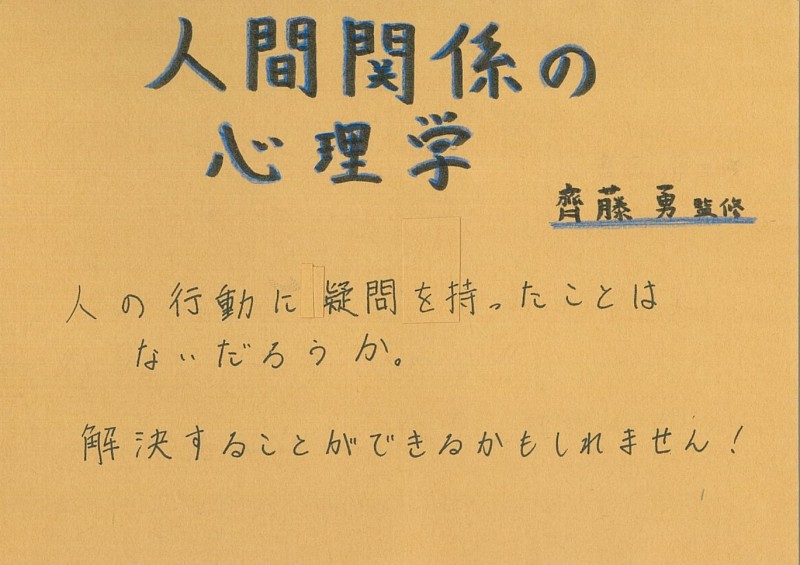 人間関係の
心理学
齊藤 勇 監修
人の行動に疑問を持ったことは
ないだろうか。
解決することができるかもしれません!